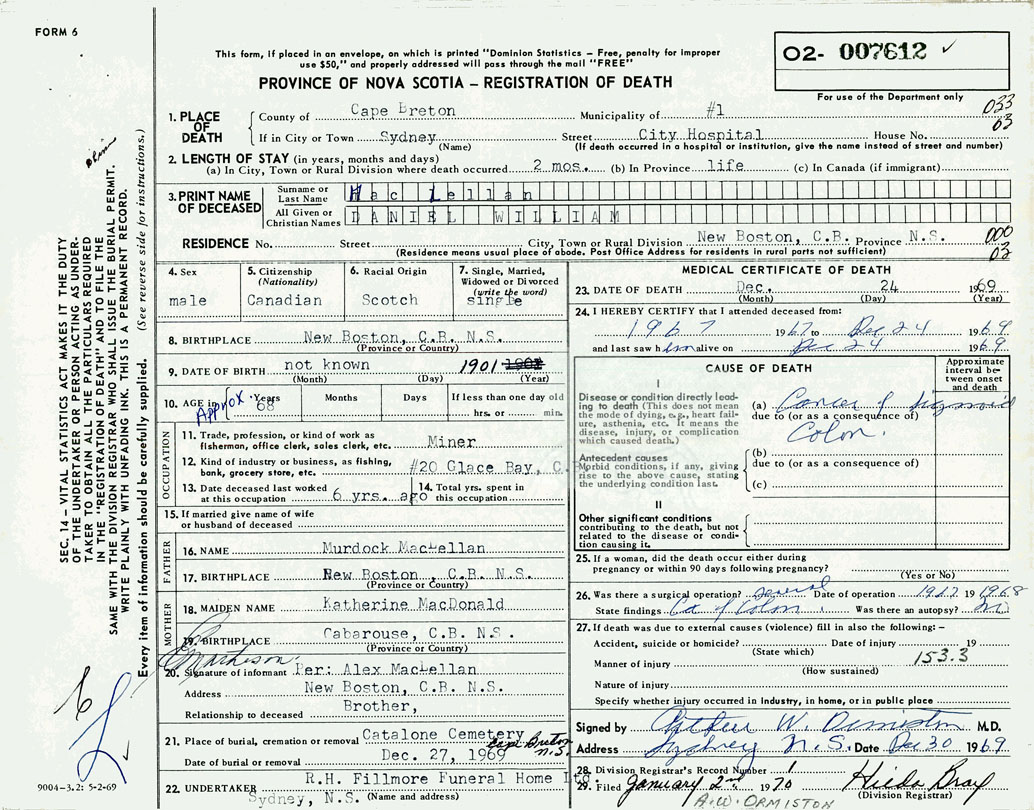 FORM 6
This form, if placed in an envelope, on which is printed "Dominion Statistics – Free, penalty for improper
use $50," and properly addressed will pass through the mail "FREE"
PROVINCE OF NOVA SCOTIA – REGISTRATION OF DEATH
02- 007612 ✓
For use of the Department only
033
03
1. PLACE OF DEATH
County of Cape Breton Municipality of #1
If in City or Town Sydney Street City Hospital House No.
(Name) (If death occurred in a hospital or institution, give the name instead of street and number)
2. LENGTH OF STAY (in years, months and days)
(a) In City, Town or Rural Division where death occurred 2 mos. (b) In Province life (c) In Canada (if immigrant)
3. PRINT NAME OF DECEASED
Surname or Last Name Mac Lellan
All Given or Christian Names DANIEL WILLIAM
RESIDENCE No. Street City, Town or Rural Division New Boston, C.B. Province N.S.
(Residence means usual place of abode. Post Office Address for residents in rural parts not sufficient)
000
02
4. Sex
male
5. Citizenship
(Nationality)
Canadian
6. Racial Origin
Scotch
7. Single, Married,
Widowed or Divorced
(write the word)
single
8. BIRTHPLACE New Boston, C.B. N.S.
(Province or Country)
9. DATE OF BIRTH not known 1901
(Month) (Day) (Year)
10. AGE in Approx Years Months Days If less than one day old
68 hrs. or min.
OCCUPATION
11. Trade, profession, or kind of work as
fisherman, office clerk, sales clerk, etc. Miner
12. Kind of industry or business, as fishing,
bank, grocery store, etc. #20 Glace Bay, C.
13. Date deceased last worked
at this occupation 6 yrs. ago
14. Total yrs. spent in
this occupation
15. If married give name of wife
or husband of deceased
FATHER
16. NAME Murdock MacLellan
17. BIRTHPLACE New Boston, C.B. N.S.
(Province or Country)
MOTHER
18. MAIDEN NAME Katherine MacDonald
19. BIRTHPLACE Cabarouse, C.B. N.S.
(Province or Country)
Matheson
20. Signature of informant Per: Alex MacLellan
Address New Boston, C.B. N.S.
Relationship to deceased Brother,
21. Place of burial, cremation or removal Catalone Cemetery Cape Breton
N.S.
Date of burial or removal Dec. 27, 1969
22. UNDERTAKER R.H. Fillmore Funeral Home Ltd.
Sydney, N.S. (Name and address)
MEDICAL CERTIFICATE OF DEATH
23. DATE OF DEATH Dec. 24 1969
(Month) (Day) (Year)
24. I HEREBY CERTIFY that I attended deceased from:
1967 1967 to Dec 24 1969
and last saw him alive on Dec 24 1969
CAUSE OF DEATH
Approximate
interval be-
tween onset
and death
I
Disease or condition directly lead-
ing to death (This does not mean
the mode of dying, e.g., heart fail-
ure, asthenia, etc. It means the
disease, injury, or complication
which caused death.)
(a) Cancer of sigmoid
due to (or as a consequence of)
Colon.
Antecedent causes
Morbid conditions, if any, giving
rise to the above cause, stating
the underlying condition last.
(b)
due to (or as a consequence of)
(c)
II
Other significant conditions
contributing to the death, but not
related to the disease or condi-
tion causing it.
25. If a woman, did the death occur either during
pregnancy or within 90 days following pregnancy?
(Yes or No)
26. Was there a surgical operation? several Date of operation 1967 19 1968
State findings Ca of Colon. Was there an autopsy? No
27. If death was due to external causes (violence) fill in also the following:-
Accident, suicide or homicide? Date of injury 19
(State which)
153.3
Manner of injury
(How sustained)
Nature of injury
Specify whether injury occurred in Industry, in home, or in public place
Signed by Arthur W. Ormiston M.D.
Address Sydney N.S. Date Dec 30 1969
28. Division Registrar's Record Number 1
29. Filed January 2nd 1970 Hilda Bray
(Division Registrar)
A.W. ORMISTON
SEC. 14 – VITAL STATISTICS ACT MAKES IT THE DUTY
OF THE UNDERTAKER OR PERSON ACTING AS UNDER-
TAKER TO OBTAIN ALL THE PARTICULARS REQUIRED
IN THE "REGISTRATION OF DEATH" AND TO FILE THE
SAME WITH THE DIVISION REGISTRAR WHO SHALL ISSUE THE BURIAL PERMIT.
WRITE PLAINLY WITH UNFADING INK. THIS IS A PERMANENT RECORD.
Every item of information should be carefully supplied. (See reverse side for instructions.)
9004–3.2: 5-2-69